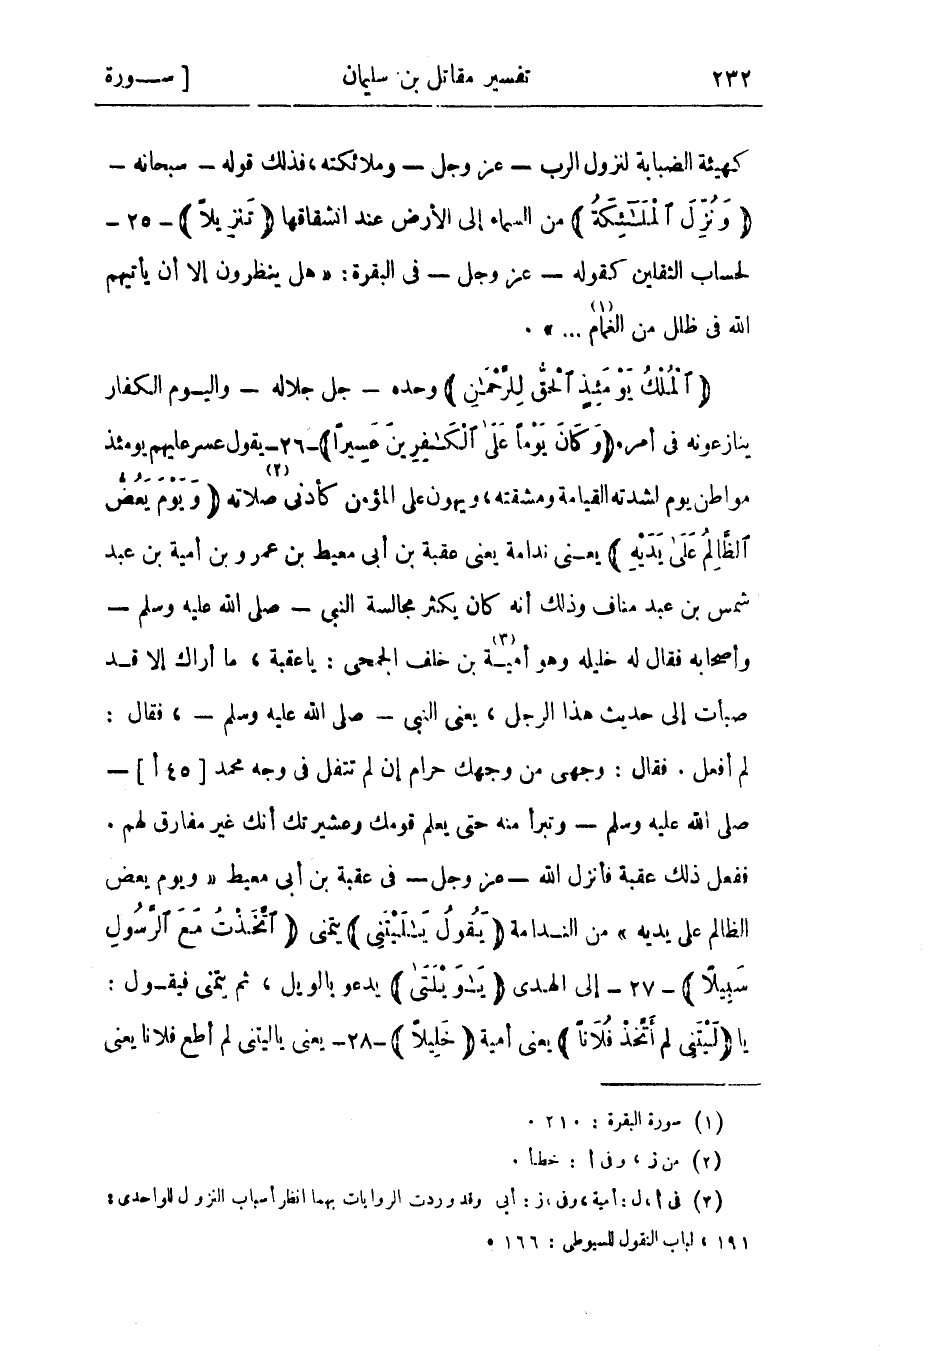 ٢٣٢ تفسير مقاتل بن سليمان [ ســـورة
كهيئة الضبابة لنزول الرب — عز وجل — وملائكته ، فذلك قوله — سبحانه —
﴿ وَنُزِّلَ ٱلْمَلَـٰٓئِكَةُ ﴾ من السماء إلى الأرض عند انشقاقها ﴿ تَنزِيلاً ﴾ ــ ٢٥ ــ
لحساب الثقلين كقوله — عز وجل — فى البقرة : « هل ينظرون إلا أن يأتيهم
الله فى ظلل من الغمام (١) ... » .
﴿ ٱلْمُلْكُ يَوْمَئِذٍ ٱلْحَقُّ لِلرَّحْمَـٰنِ ﴾ وحده — جل جلاله — واليــوم الكفار
ينازعونه فى أمره ﴿ وَكَانَ يَوْماً عَلَى ٱلْكَـٰفِرِينَ عَسِيراً ﴾ ــ ٢٦ ــ يقول عسر عليهم يومئذ
مواطن يوم لشدته القيامة ومشقته ، ويهون على المؤمن كأدنى (٢) صلاته ﴿ وَيَوْمَ يَعَضُّ
ٱلظَّالِمُ عَلَىٰ يَدَيْهِ ﴾ يعــنى ندامة يعنى عقبة بن أبى معيط بن عمرو بن أمية بن عبد
شمس بن عبد مناف وذلك أنه كان يكثر مجالسة النبي — صلى الله عليه وسلم —
وأصحابه فقال له خليله وهو أميــة (٣) بن خلف الجمحى : ياعقبة ، ما أراك إلا قــد
صبأت إلى حديث هذا الرجل ، يعنى النبي — صلى الله عليه وسلم — ، فقال :
لم أفعل . فقال : وجهى من وجهك حرام إن لم تتفل فى وجه محمد [ ٤٥ أ ] —
صلى الله عليه وسلم — وتبرأ منه حتى يعلم قومك وعشيرتك أنك غير مفارق لهم .
ففعل ذلك عقبة فأنزل الله — عز وجل — فى عقبة بن أبى معيط « ويوم يعض
الظالم على يديه » من النــدامة ﴿ يَقُولُ يَـٰلَيْتَنِى ﴾ يتمنى ﴿ ٱتَّخَذْتُ مَعَ ٱلرَّسُولِ
سَبِيلًا ﴾ ــ ٢٧ ــ إلى الهدى ﴿ يَـٰوَيْلَتَىٰ ﴾ يدعو بالويل ، ثم يتمنى فيقــول :
يا ﴿ لَيْتَنِى لم أَتَّخِذْ فُلَاناً ﴾ يعنى أمية ﴿ خَلِيلاً ﴾ ــ ٢٨ ــ يعنى ياليتنى لم أطع فلانا يعنى
(١) سورة البقرة : ٢١٠ .
(٢) من ز ، وفى أ : خطأ .
(٣) فى أ ، ل : أمية ، وفى ، ز : أبى وقد وردت الروايات بهما انظر أسباب النزول للواحدى :
١٩١ ، لباب النقول للسيوطى : ١٦٦ .